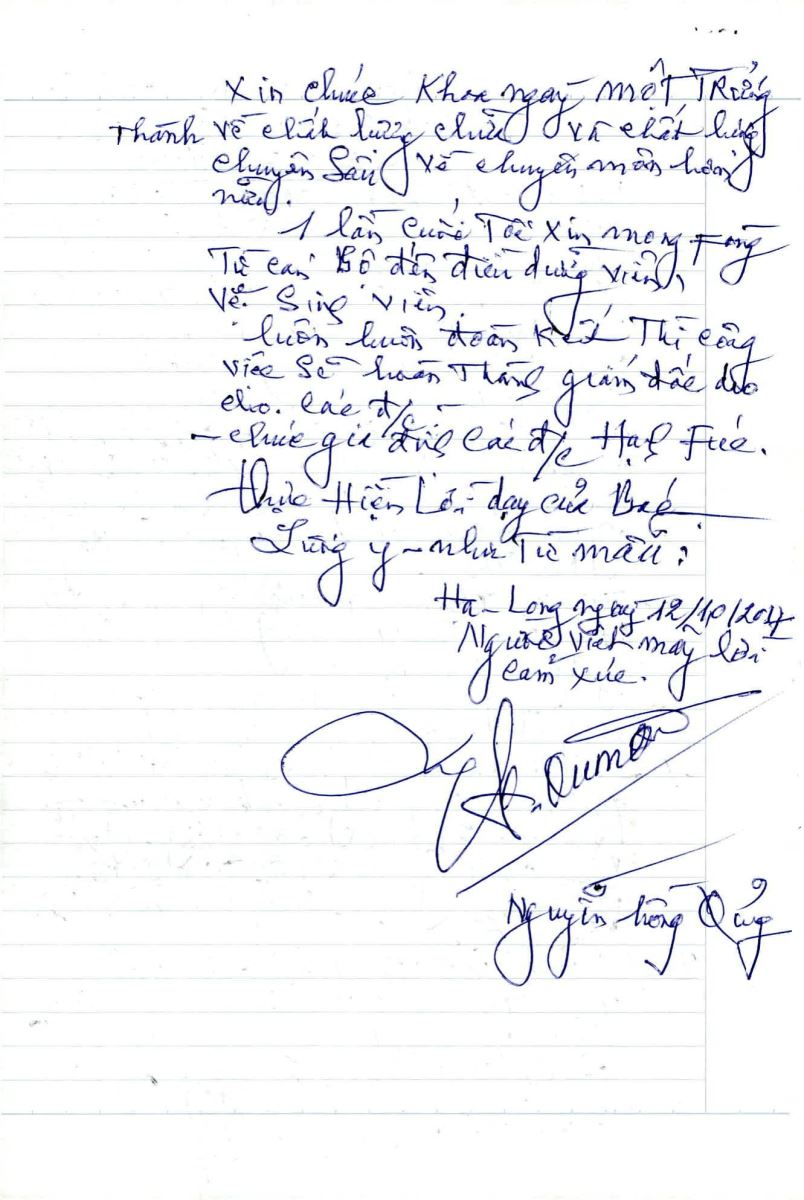 Xin chúc Khoa ngày một Trưởng
Thành về chất lượng chữa và chất lượng
chuyên Sâu về chuyên môn hơn
nữa.
1 lần cuối Tôi Xin mong
Từ cán Bộ đến điều dưỡng viên,
Về Sing viên.
luôn luôn đoàn Kết Thì công
việc Sẽ hoàn Thành
cho. các đ/c -
- chúc gia đình các đ/c Hạnh Fúc.
thực Hiện Lời dạy của Bác
Lương y - như Từ mẫu:
Hạ - Long ngày 12/10/2017
Người viết mấy lời
cảm xúc.
Nguyễn hồng